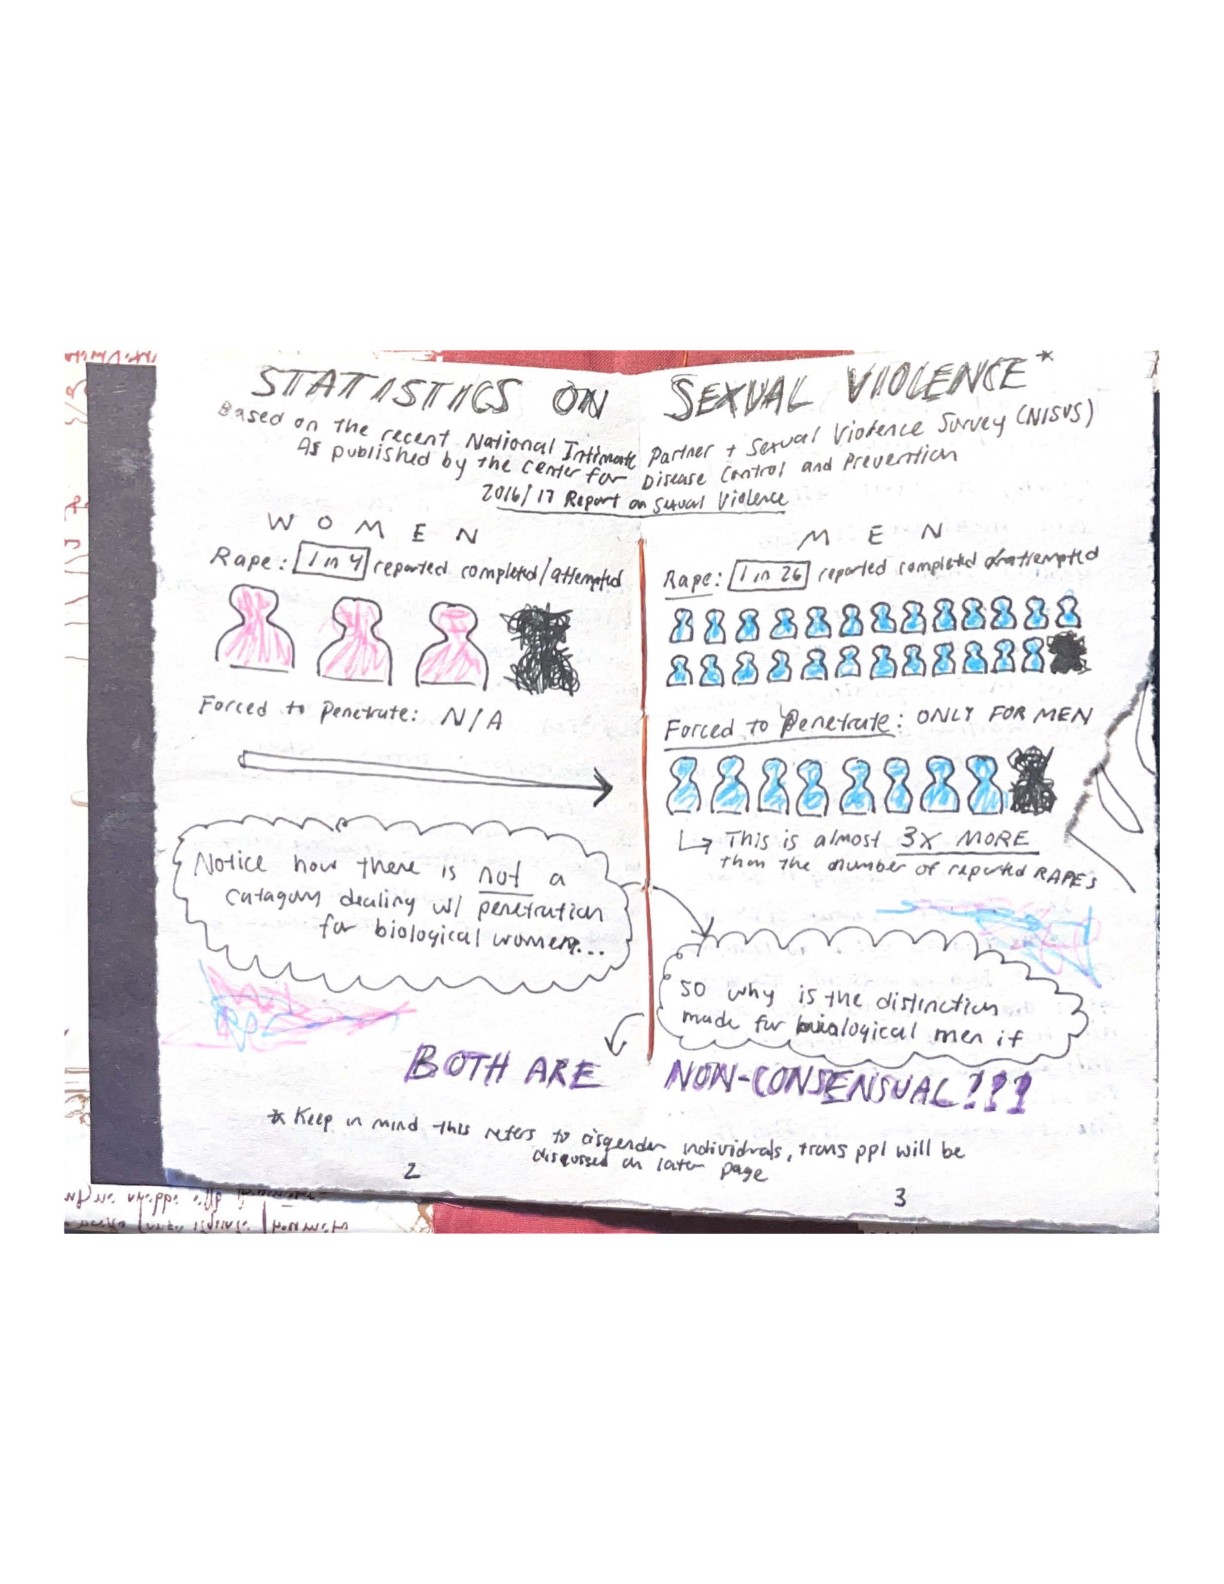 STATISTICS ON SEXUAL VIOLENCE*
Based on the recent National Intimate Partner + Sexual Violence Survey (NISVS)
As published by the center for Disease Control and Prevention
2016/17 Report on Sexual Violence
WOMEN
Rape: 1 in 4 reported completed/attempted
Forced to penetrate: N/A
Notice how there is not a
catagory dealing w/ penetration
for biological women...
MEN
Rape: 1 in 26 reported completed attempted
Forced to penetrate: ONLY FOR MEN
↳ This is almost 3X MORE
than the number of reported RAPES
so why is the distinction
made for biological men if
BOTH ARE NON-CONSENSUAL???
* Keep in mind this refers to cisgender individuals, trans ppl will be
discussed on later page
2
3